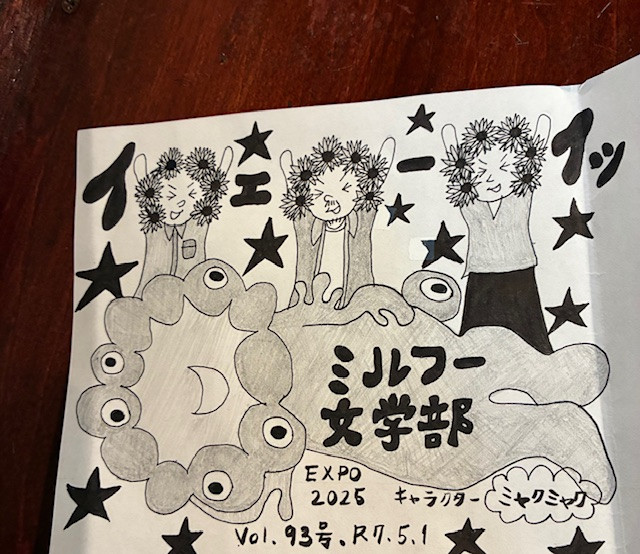 イェーイッ
ミルフー
文学部
EXPO
2025 キャラクター ミャクミャク
Vol. 93号. R7.5.1